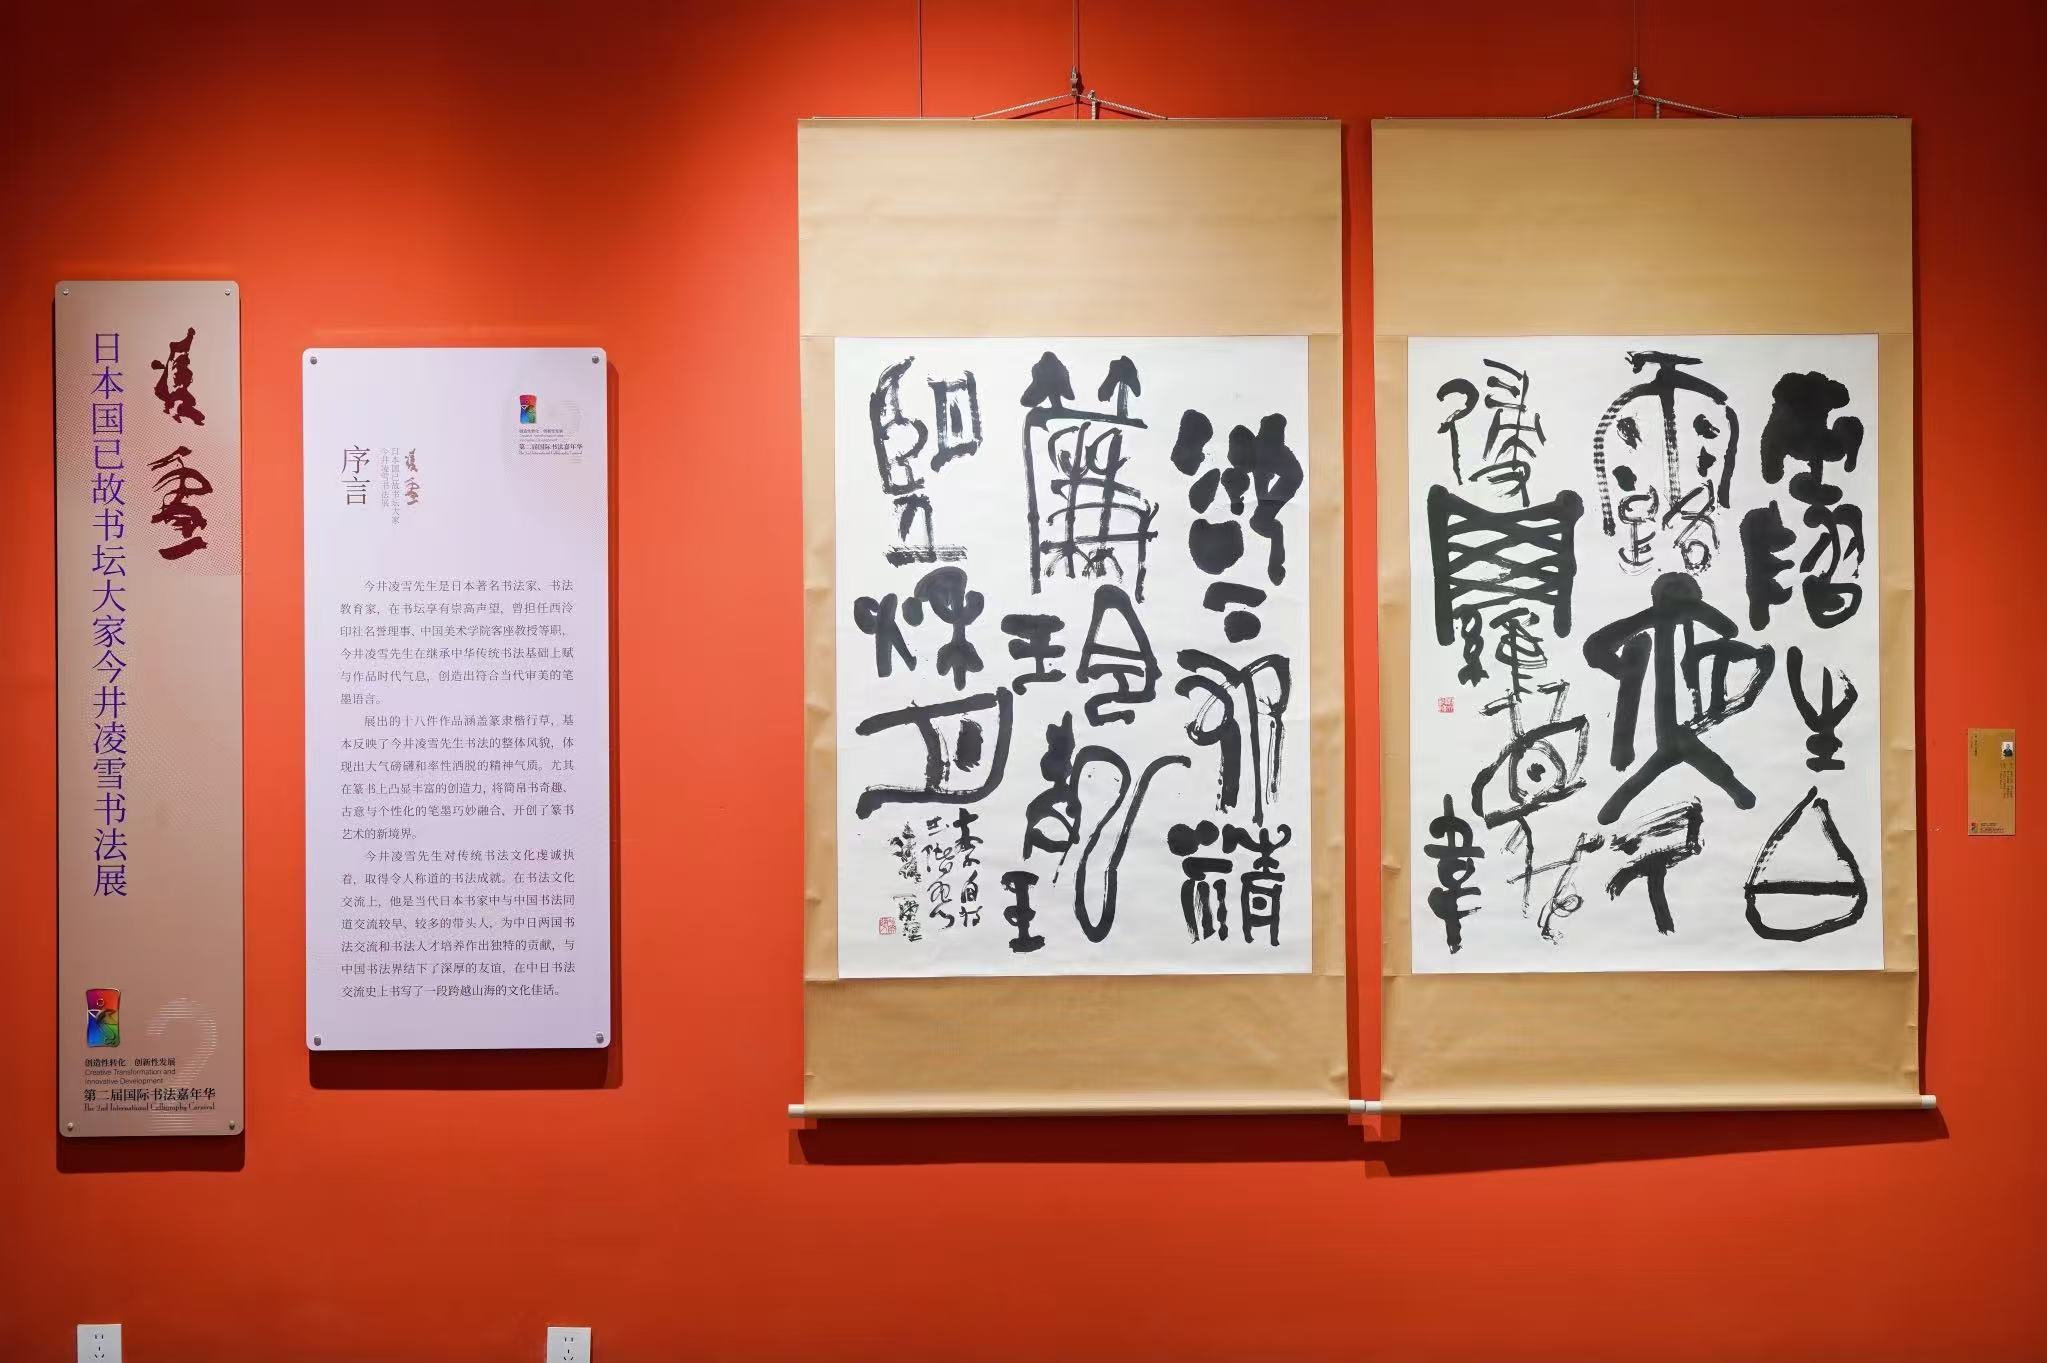 凌雪
日本国已故书坛大家今井凌雪书法展
创造性转化 创新性发展
Creative Transformation and
Innovative Development
第二届国际书法嘉年华
The 2nd International Calligraphy Carnival
创造性转化 创新性发展
Creative Transformation and
Innovative Development
第二届国际书法嘉年华
The 2nd International Calligraphy Carnival
凌雪
日本国已故书坛大家
今井凌雪书法展
序言
今井凌雪先生是日本著名书法家、书法
教育家，在书坛享有崇高声望，曾担任西泠
印社名誉理事、中国美术学院客座教授等职，
今井凌雪先生在继承中华传统书法基础上赋
与作品时代气息，创造出符合当代审美的笔
墨语言。
展出的十八件作品涵盖篆隶楷行草，基
本反映了今井凌雪先生书法的整体风貌，体
现出大气磅礴和率性洒脱的精神气质。尤其
在篆书上凸显丰富的创造力，将简帛书奇趣、
古意与个性化的笔墨巧妙融合，开创了篆书
艺术的新境界。
今井凌雪先生对传统书法文化虔诚执
着，取得令人称道的书法成就。在书法文化
交流上，他是当代日本书家中与中国书法同
道交流较早、较多的带头人，为中日两国书
法交流和书法人才培养作出独特的贡献，与
中国书法界结下了深厚的友谊，在中日书法
交流史上书写了一段跨越山海的文化佳话。
生白
露夜
羅
精
簾玲